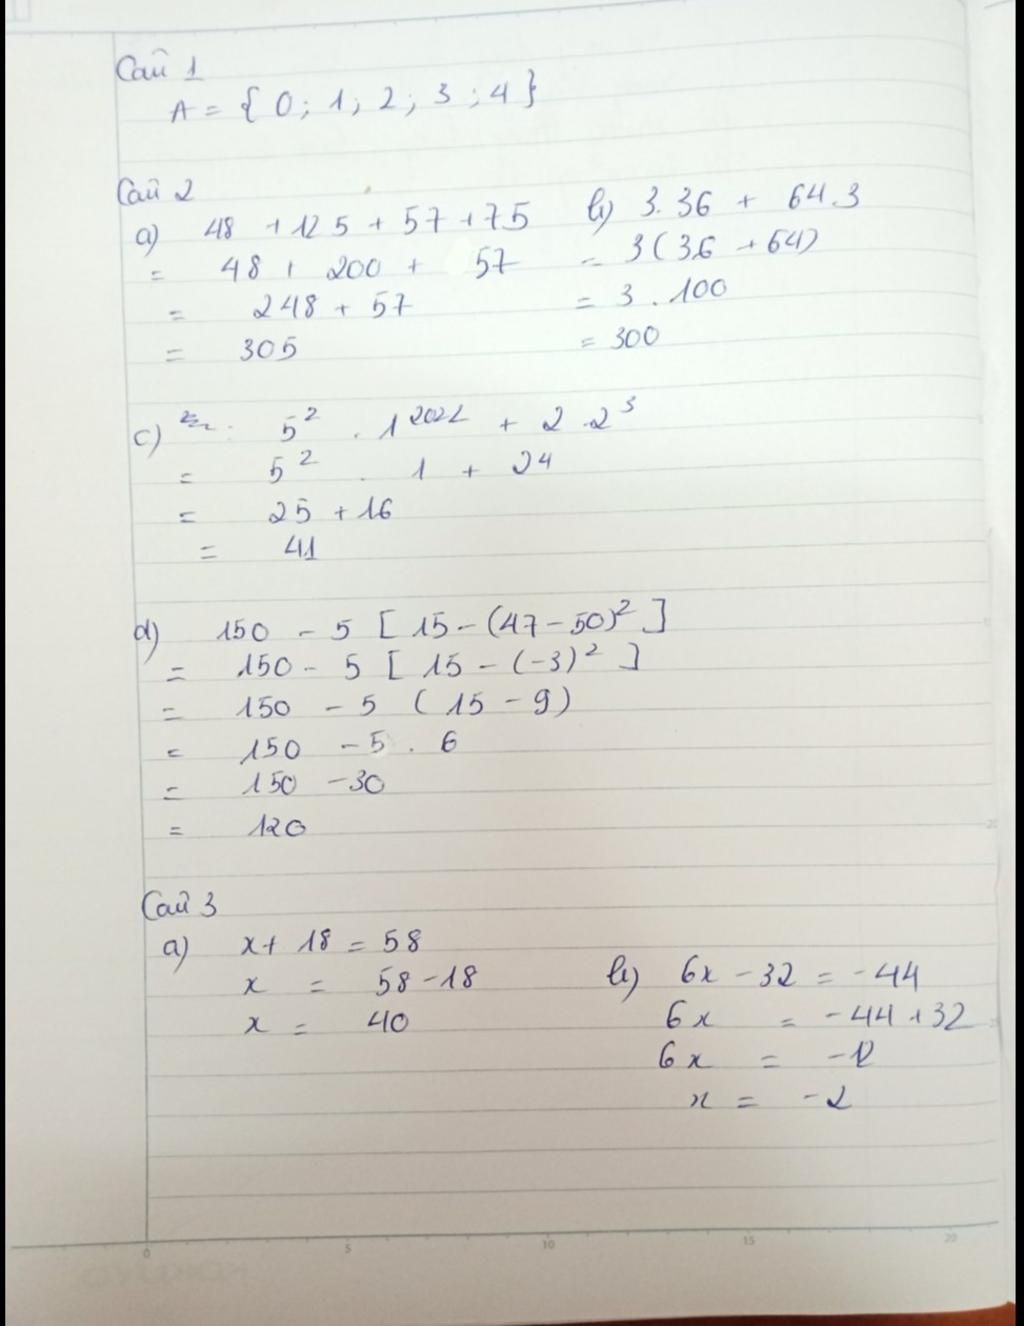 Câu 1
A = { 0 ; 1 ; 2 ; 3 ; 4 }
Câu 2
a) 48 + 125 + 57 + 75
= 48 + 200 + 57
= 248 + 57
= 305
b) 3.36 + 64.3
= 3(36 + 64)
= 3 . 100
= 300
c) 5² . 1²⁰²² + 2 . 2³
= 5² . 1 + 2⁴
= 25 + 16
= 41
d) 150 - 5 [ 15 - (47 - 50)² ]
= 150 - 5 [ 15 - (-3)² ]
= 150 - 5 ( 15 - 9)
= 150 - 5 . 6
= 150 - 30
= 120
Câu 3
a) x + 18 = 58
x = 58 - 18
x = 40
b) 6x - 32 = -44
6x = -44 + 32
6x = -12
x = -2
0 5 10 15 20